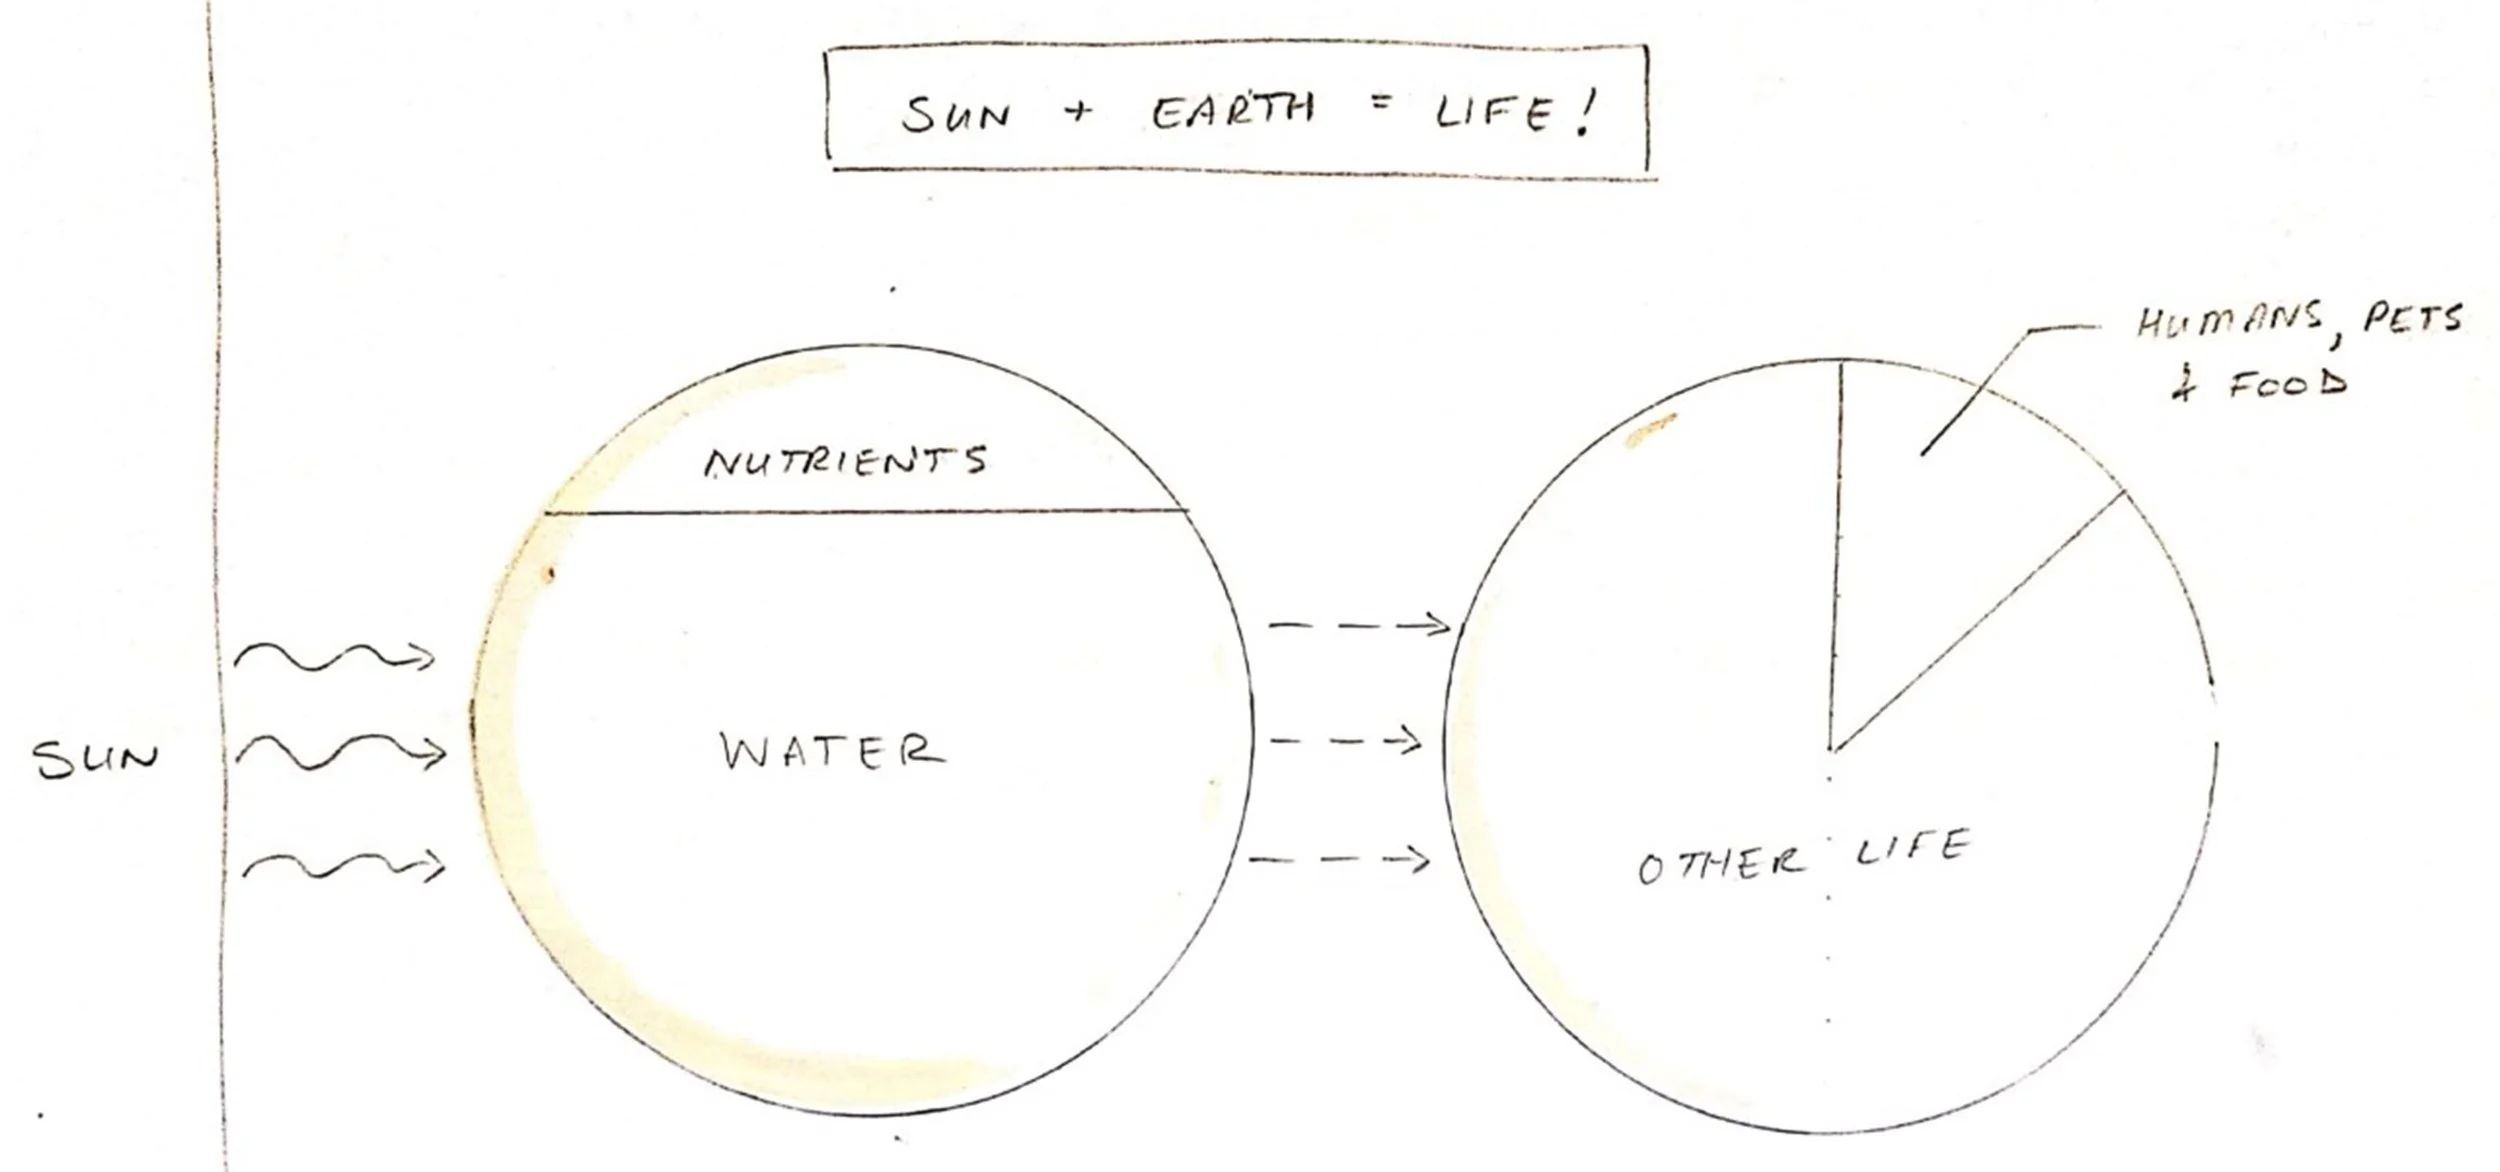 SUN + EARTH = LIFE!
HUMANS, PETS
& FOOD
NUTRIENTS
SUN
WATER
OTHER LIFE